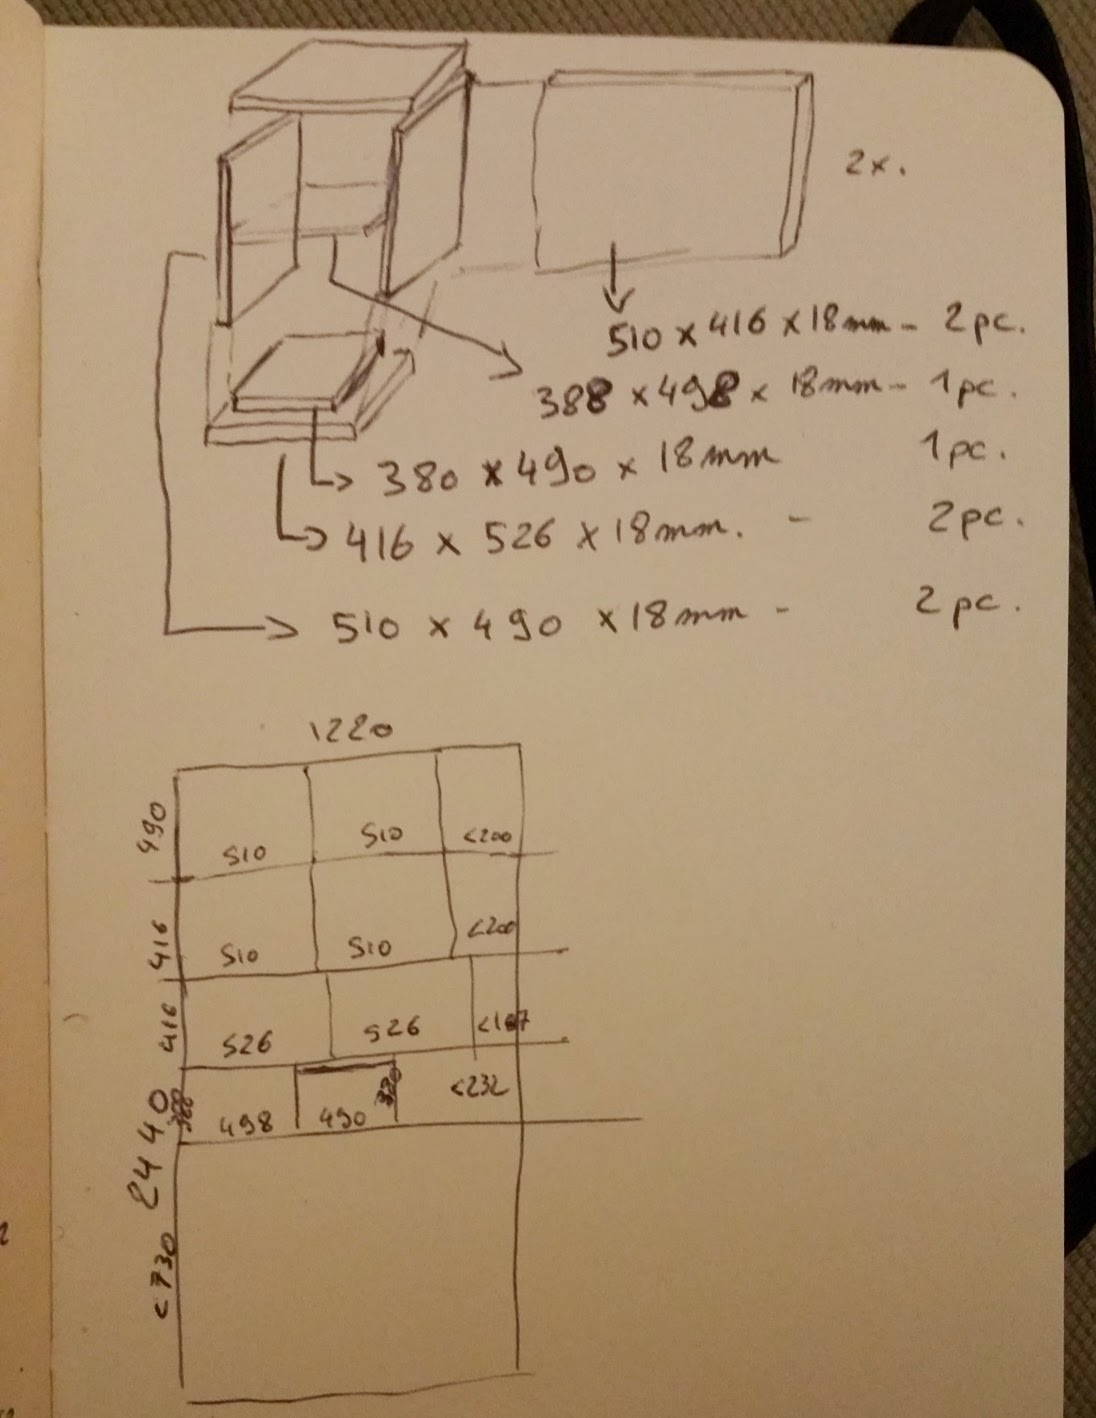 2x.
510 x 416 x 18mm - 2pc.
388 x 498 x 18mm - 1pc.
380 x 490 x 18mm 1pc.
416 x 526 x 18mm. - 2pc.
510 x 490 x 18mm - 2pc.
1220
490
510 510 <200
416
510 510 <200
416
526 526 <187
2440
388
498 490 380 <232
<730